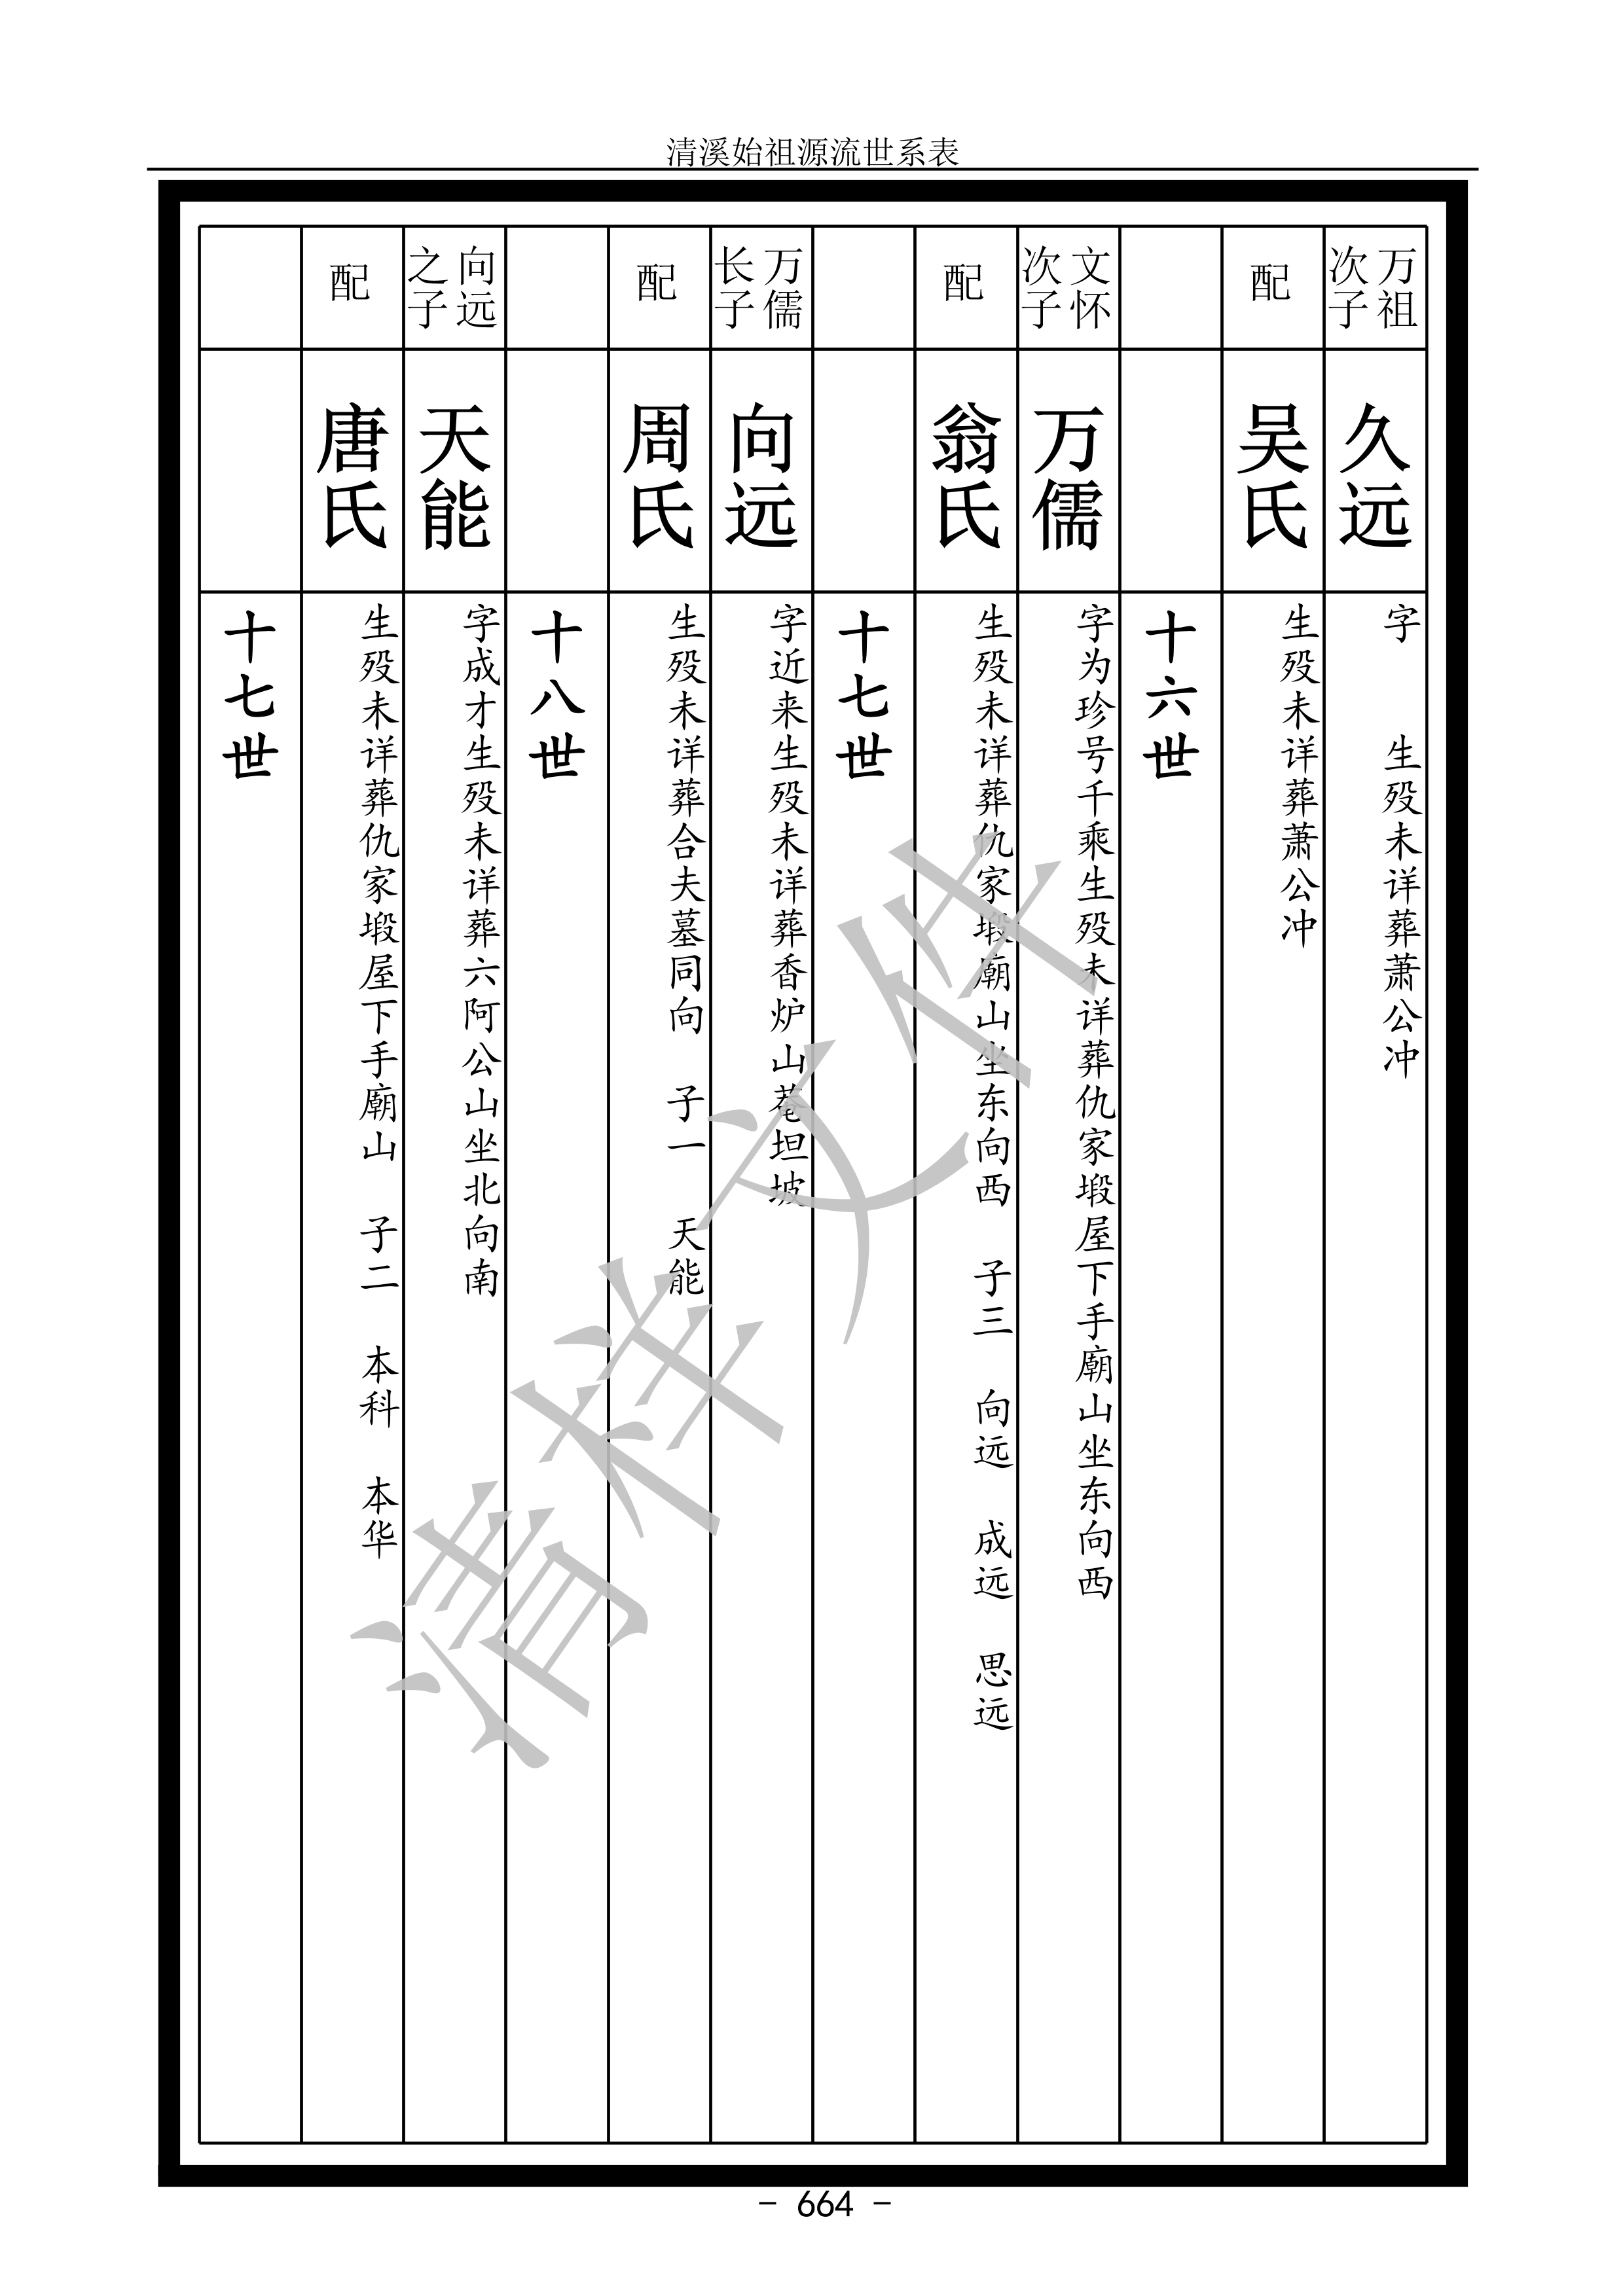 清溪始祖源流世系表
万祖
次子
久远
字 生殁未详葬萧公冲
配
吴氏
生殁未详葬萧公冲
十六世
文怀
次子
万儒
字为珍号千乘生殁未详葬仇家塅屋下手廟山坐东向西
配
翁氏
生殁未详葬仇家塅廟山坐东向西 子三 向远 成远 思远
十七世
万儒
长子
向远
字近来生殁未详葬香炉山菴坦坡
配
周氏
生殁未详葬合夫墓同向 子一 天能
十八世
向远
之子
天能
字成才生殁未详葬六阿公山坐北向南
配
唐氏
生殁未详葬仇家塅屋下手廟山 子二 本科 本华
十七世
清样文件
- 664 -